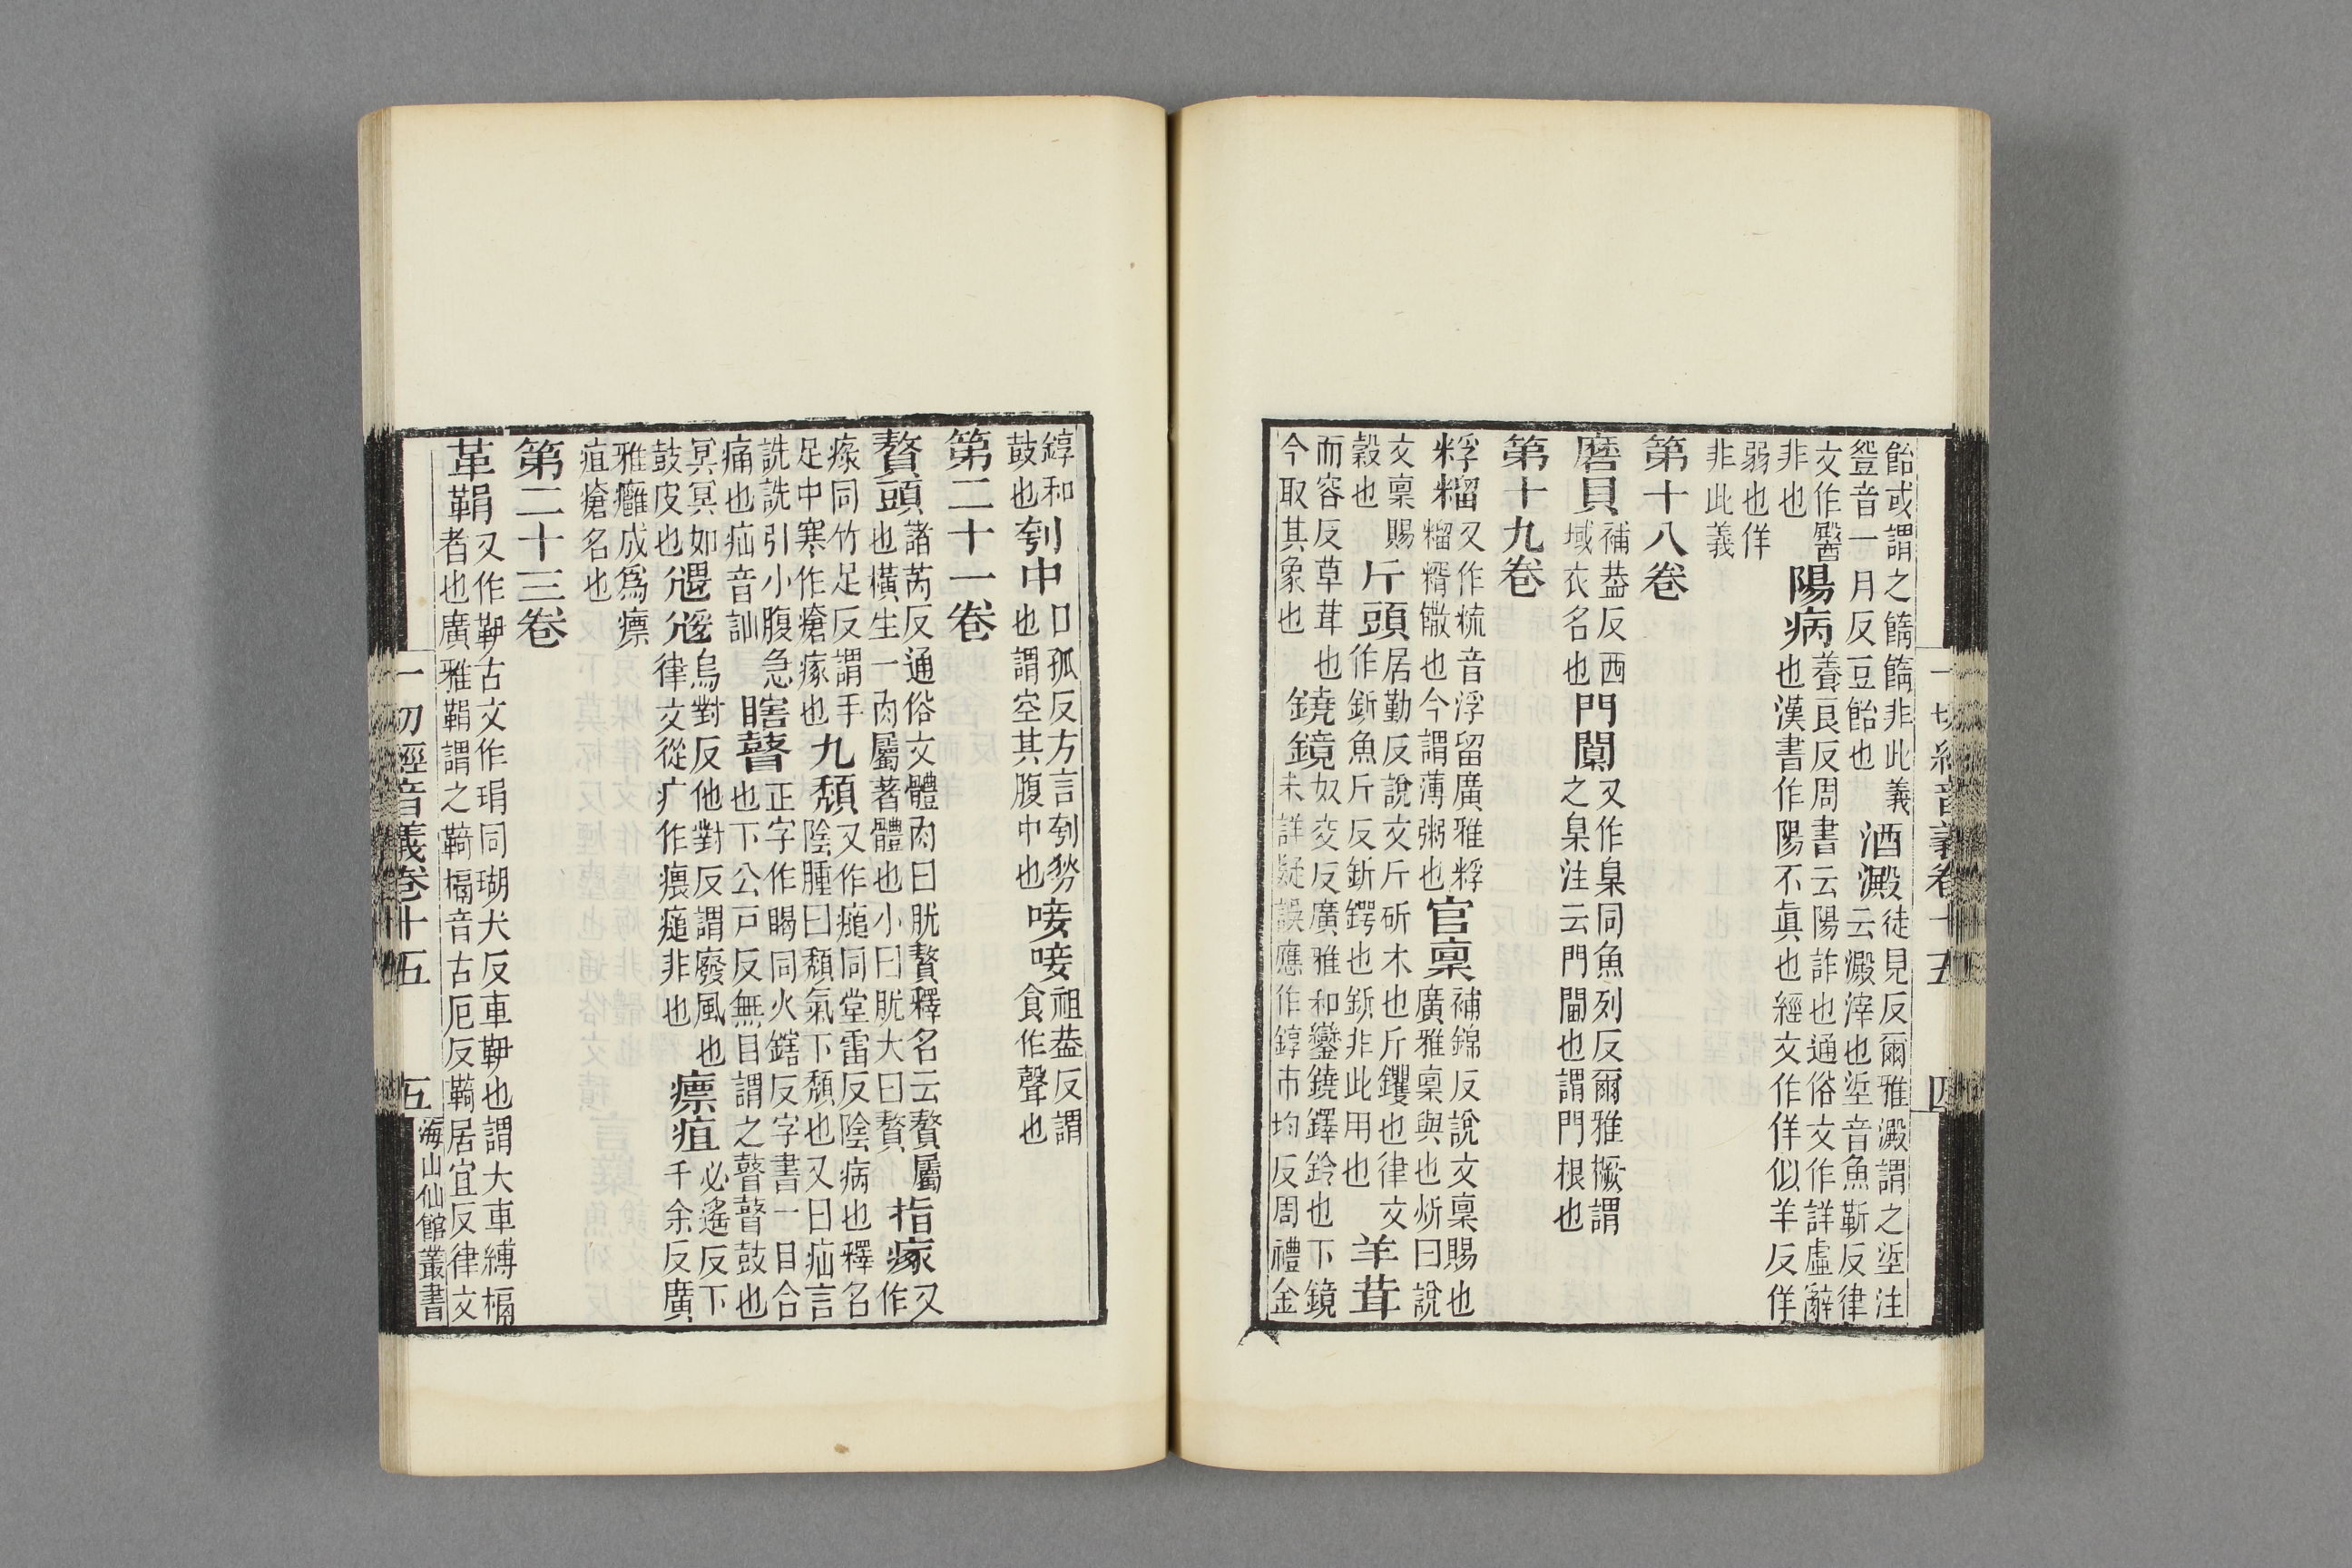 飴或謂之餹餹非此義酒澱徒見反爾雅澱謂之垽注
䇺音一月反豆飴也云澱滓也垽音魚靳反律
文作醫陽病養良反周書云陽詐也通俗文作詳虛辭
非也也漢書作陽不眞也經文作佯似羊反佯
弱也佯
非此義
第十八卷
磨貝補葢反西域衣名也門闑又作臬同魚列反爾雅橛謂之臬注云門閫也謂門根也
第十九卷
粰𥻳又作䊍音浮留廣雅粰𥻳糈饊也今謂薄粥也官稟補錦反說文稟賜也廣雅稟與也㪽曰說
文稟賜穀也斤頭居勤反說文斤斫木也斤钁也律文作釿魚斤反釿鍔也釿非此用也羊茸
而容反草茸也鐃鏡奴交反廣雅和鑾鐃鐸鈴也下鏡
今取其象也未詳疑誤應作錞市均反周禮金
錞和鼓也刳中口孤反方言刳剺也謂空其腹中也唼唼祖葢反謂食作聲也
第二十一卷
贅頭諸芮反通俗文體肉曰肬贅釋名云贅屬也橫生一肉屬著體也小曰肬大曰贅指瘃又作
瘃同竹足反謂手足中寒作瘡瘃也九頹又作㿗同堂雷反陰病也釋名陰腫曰頹氣下頹也又曰疝言
詵詵引小腹急痛也疝音訕瞎瞽正字作䁅同火鎋反字書一目合也下公戶反無目謂之瞽瞽鼓也
冥冥如鼓皮也𡯷𡯵烏對反他對反謂廢風也律文從疒作㾯㾽非也瘭疽必遙反下千余反廣
雅癰成爲瘭疽瘡名也
第二十三卷
革鞙又作䩸古文作琄同瑚犬反車䩸也謂大車縛槅者也廣雅鞙謂之䩭槅音古厄反䩭居宜反律文
一切經音義卷十五
四
一切經音義卷十五
五
海山仙館叢書